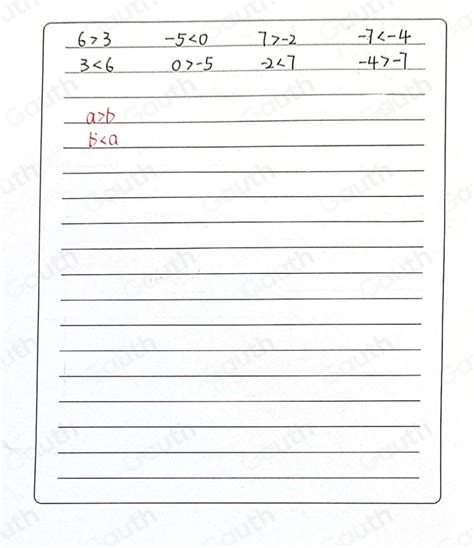 6>3 -5<0 7>-2 -7<-4
3<6 0>-5 -2<7 -4>-7
a>b
b<a